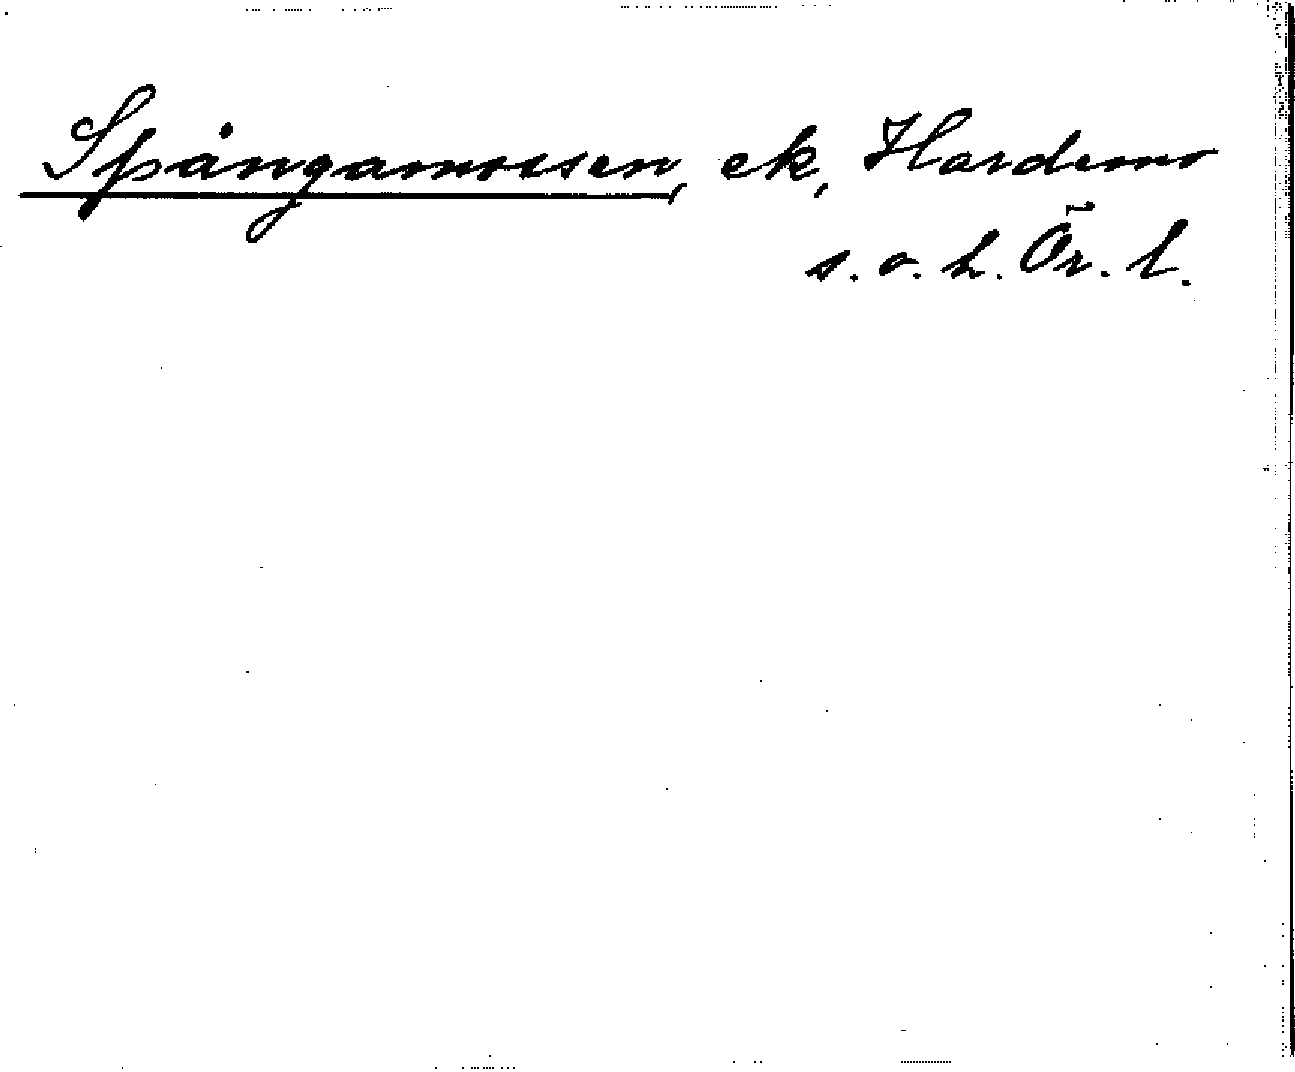 Spångamossen, ek, Hardemo
s. o. h. Ör. l.